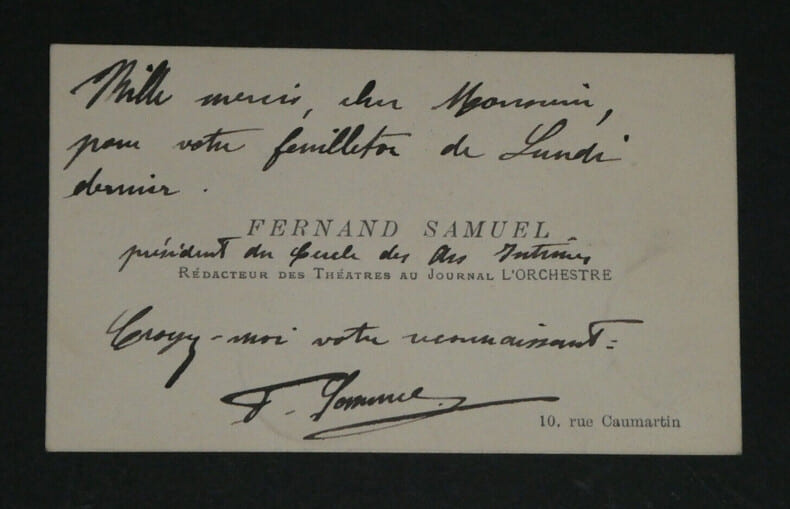 Mille mercis, cher Monsieur,
pour votre feuilleton de Lundi
dernier.
FERNAND SAMUEL
président du Cercle des Arts Intimes
RÉDACTEUR DES THÉATRES AU JOURNAL L'ORCHESTRE
Croyez-moi votre reconnaissant=
F. Samuel
10, rue Caumartin